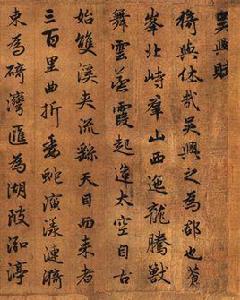 吳興賦
猗與休哉吳興之為郡也蒼
峯北峙羣山西迤龍騰獸
舞雲蒸霞起造太空自古
始雙溪夾流繇天目而來者
三百里曲折委蛇演漾漣漪
東為碕灣匯為湖陂泓渟